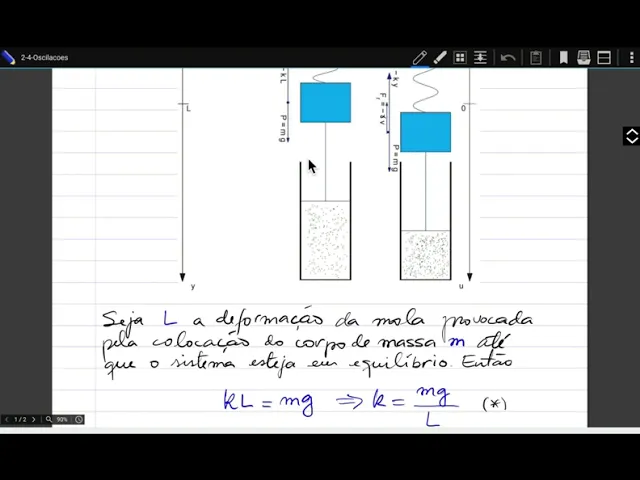 2-4-Oscilacoes
-kL
-ky
L
0
P=mg
P=mg
y
u
Seja L a deformação da mola provocada
pela colocação do corpo de massa m até
que o sistema esteja em equilíbrio. Então
kL = mg ⟹ k = mg/L (*)
1 / 2
90%